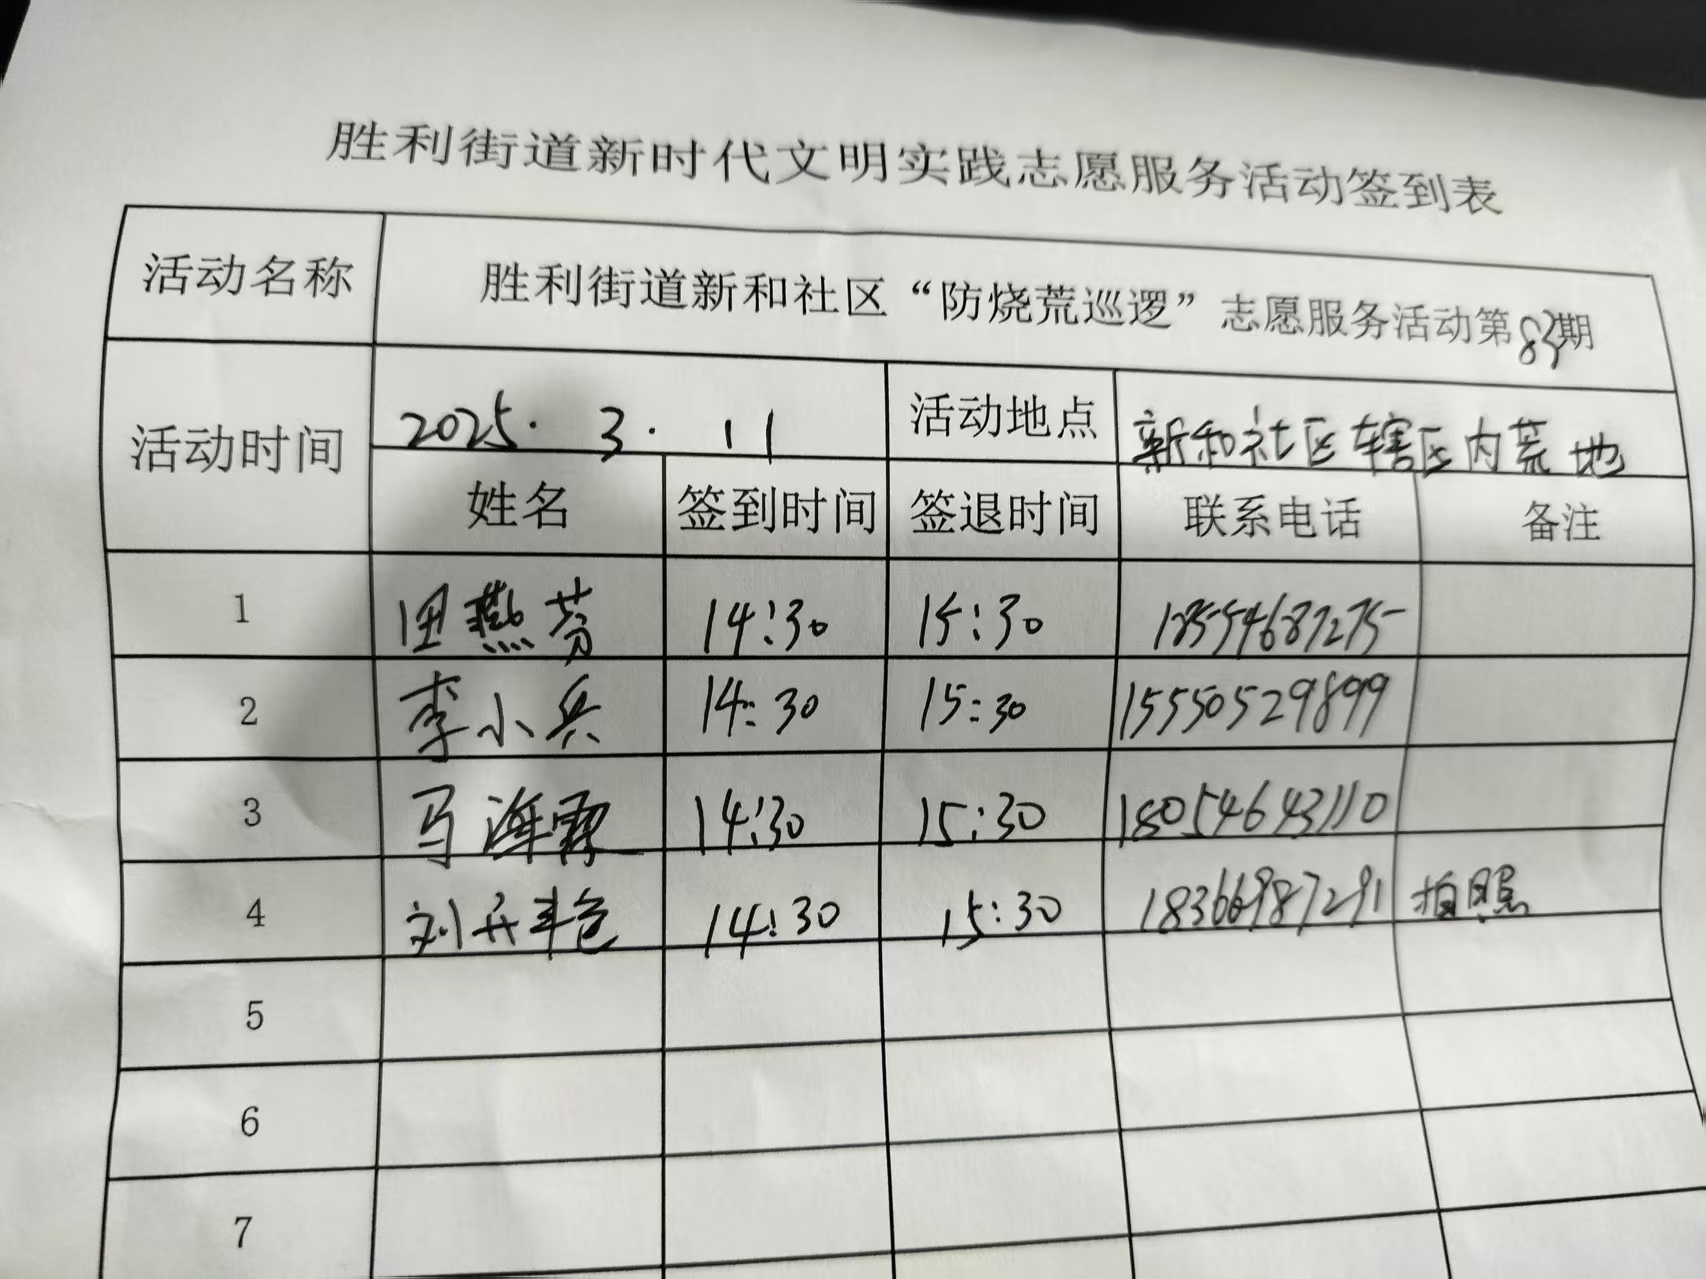 胜利街道新时代文明实践志愿服务活动签到表
活动名称 胜利街道新和社区“防烧荒巡逻”志愿服务活动第83期
活动时间 2025.3.11 活动地点 新和社区辖区内荒地
姓名 签到时间 签退时间 联系电话 备注
1 田燕芬 14:30 15:30 18554687275
2 李小兵 14:30 15:30 15550529899
3 马海霞 14:30 15:30 18054643110
4 刘 14:30 15:30 18366987291 拍照
5
6
7